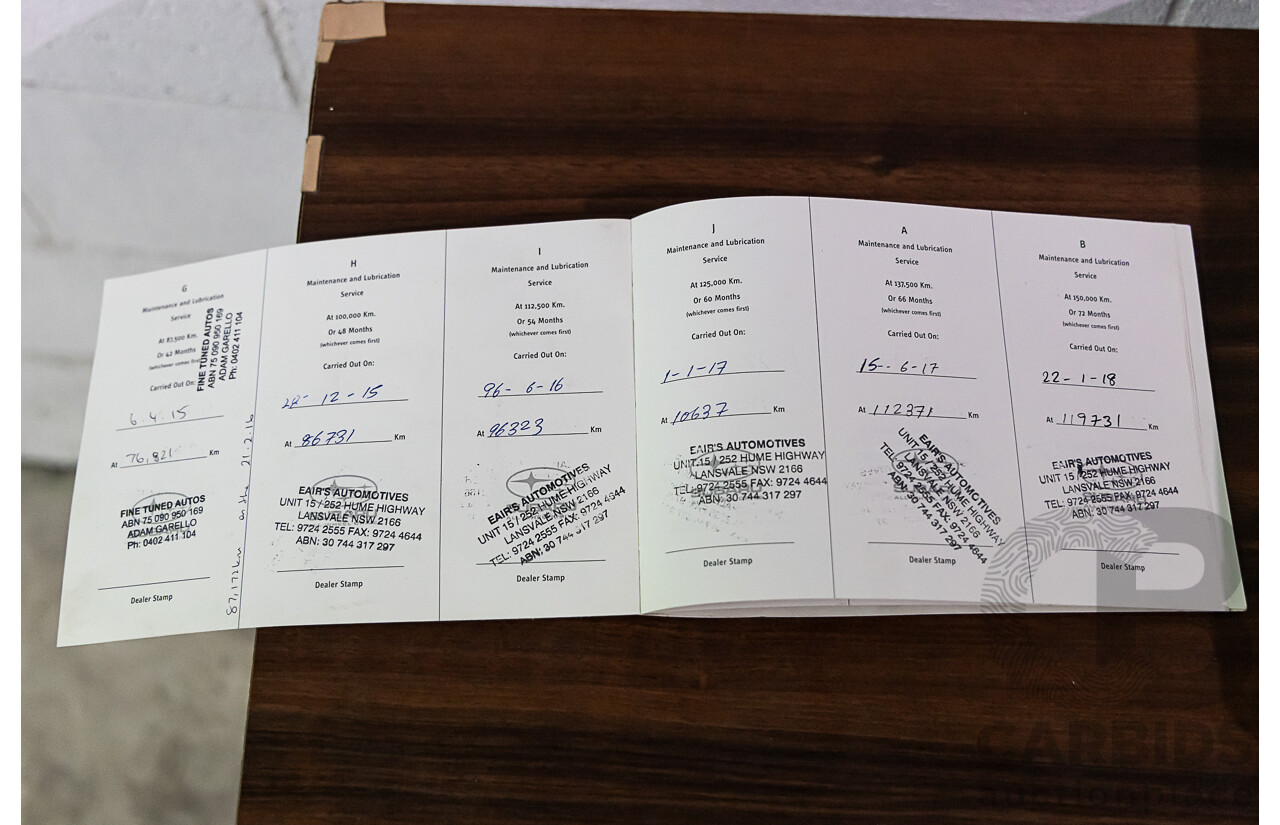 G
Maintenance and Lubrication
Service
At 87,500 Km.
Or 42 Months
(whichever comes first)
Carried Out On:
6.4.15
At 76,821 Km
FINE TUNED AUTOS
ABN 75 090 950 169
ADAM GARELLO
Ph: 0402 411 104
Dealer Stamp
FINE TUNED AUTOS
ABN 75 090 950 169
ADAM GARELLO
Ph: 0402 411 104
87,172km on the 21.2.16
H
Maintenance and Lubrication
Service
At 100,000 Km.
Or 48 Months
(whichever comes first)
Carried Out On:
12 - 15
At 86731 Km
EAIR'S AUTOMOTIVES
UNIT 15 / 252 HUME HIGHWAY
LANSVALE NSW 2166
TEL: 9724 2555 FAX: 9724 4644
ABN: 30 744 317 297
Dealer Stamp
I
Maintenance and Lubrication
Service
At 112,500 Km.
Or 54 Months
(whichever comes first)
Carried Out On:
96- 6-16
At 96323 Km
EAIR'S AUTOMOTIVES
UNIT 15 / 252 HUME HIGHWAY
LANSVALE NSW 2166
TEL: 9724 2555 FAX: 9724 4644
ABN: 30 744 317 297
Dealer Stamp
J
Maintenance and Lubrication
Service
At 125,000 Km.
Or 60 Months
(whichever comes first)
Carried Out On:
1-1-17
At 10637 Km
EAIR'S AUTOMOTIVES
UNIT 15 / 252 HUME HIGHWAY
LANSVALE NSW 2166
TEL: 9724 2555 FAX: 9724 4644
ABN: 30 744 317 297
Dealer Stamp
A
Maintenance and Lubrication
Service
At 137,500 Km.
Or 66 Months
(whichever comes first)
Carried Out On:
15-- 6-17
At 112371 Km
EAIR'S AUTOMOTIVES
UNIT 15 / 252 HUME HIGHWAY
LANSVALE NSW 2166
TEL: 9724 2555 FAX: 9724 4644
ABN: 30 744 317 297
Dealer Stamp
B
Maintenance and Lubrication
Service
At 150,000 Km.
Or 72 Months
(whichever comes first)
Carried Out On:
22-1-18
At 119731 Km
EAIR'S AUTOMOTIVES
UNIT 15 / 252 HUME HIGHWAY
LANSVALE NSW 2166
TEL: 9724 2555 FAX: 9724 4644
ABN: 30 744 317 297
Dealer Stamp
CARBIDS